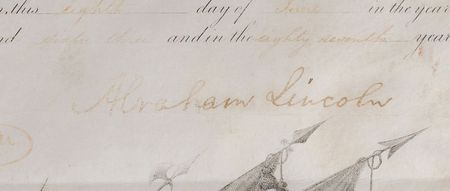 this eighth day of June in the year
sixty three and in the eighty seventh year
Abraham Lincoln